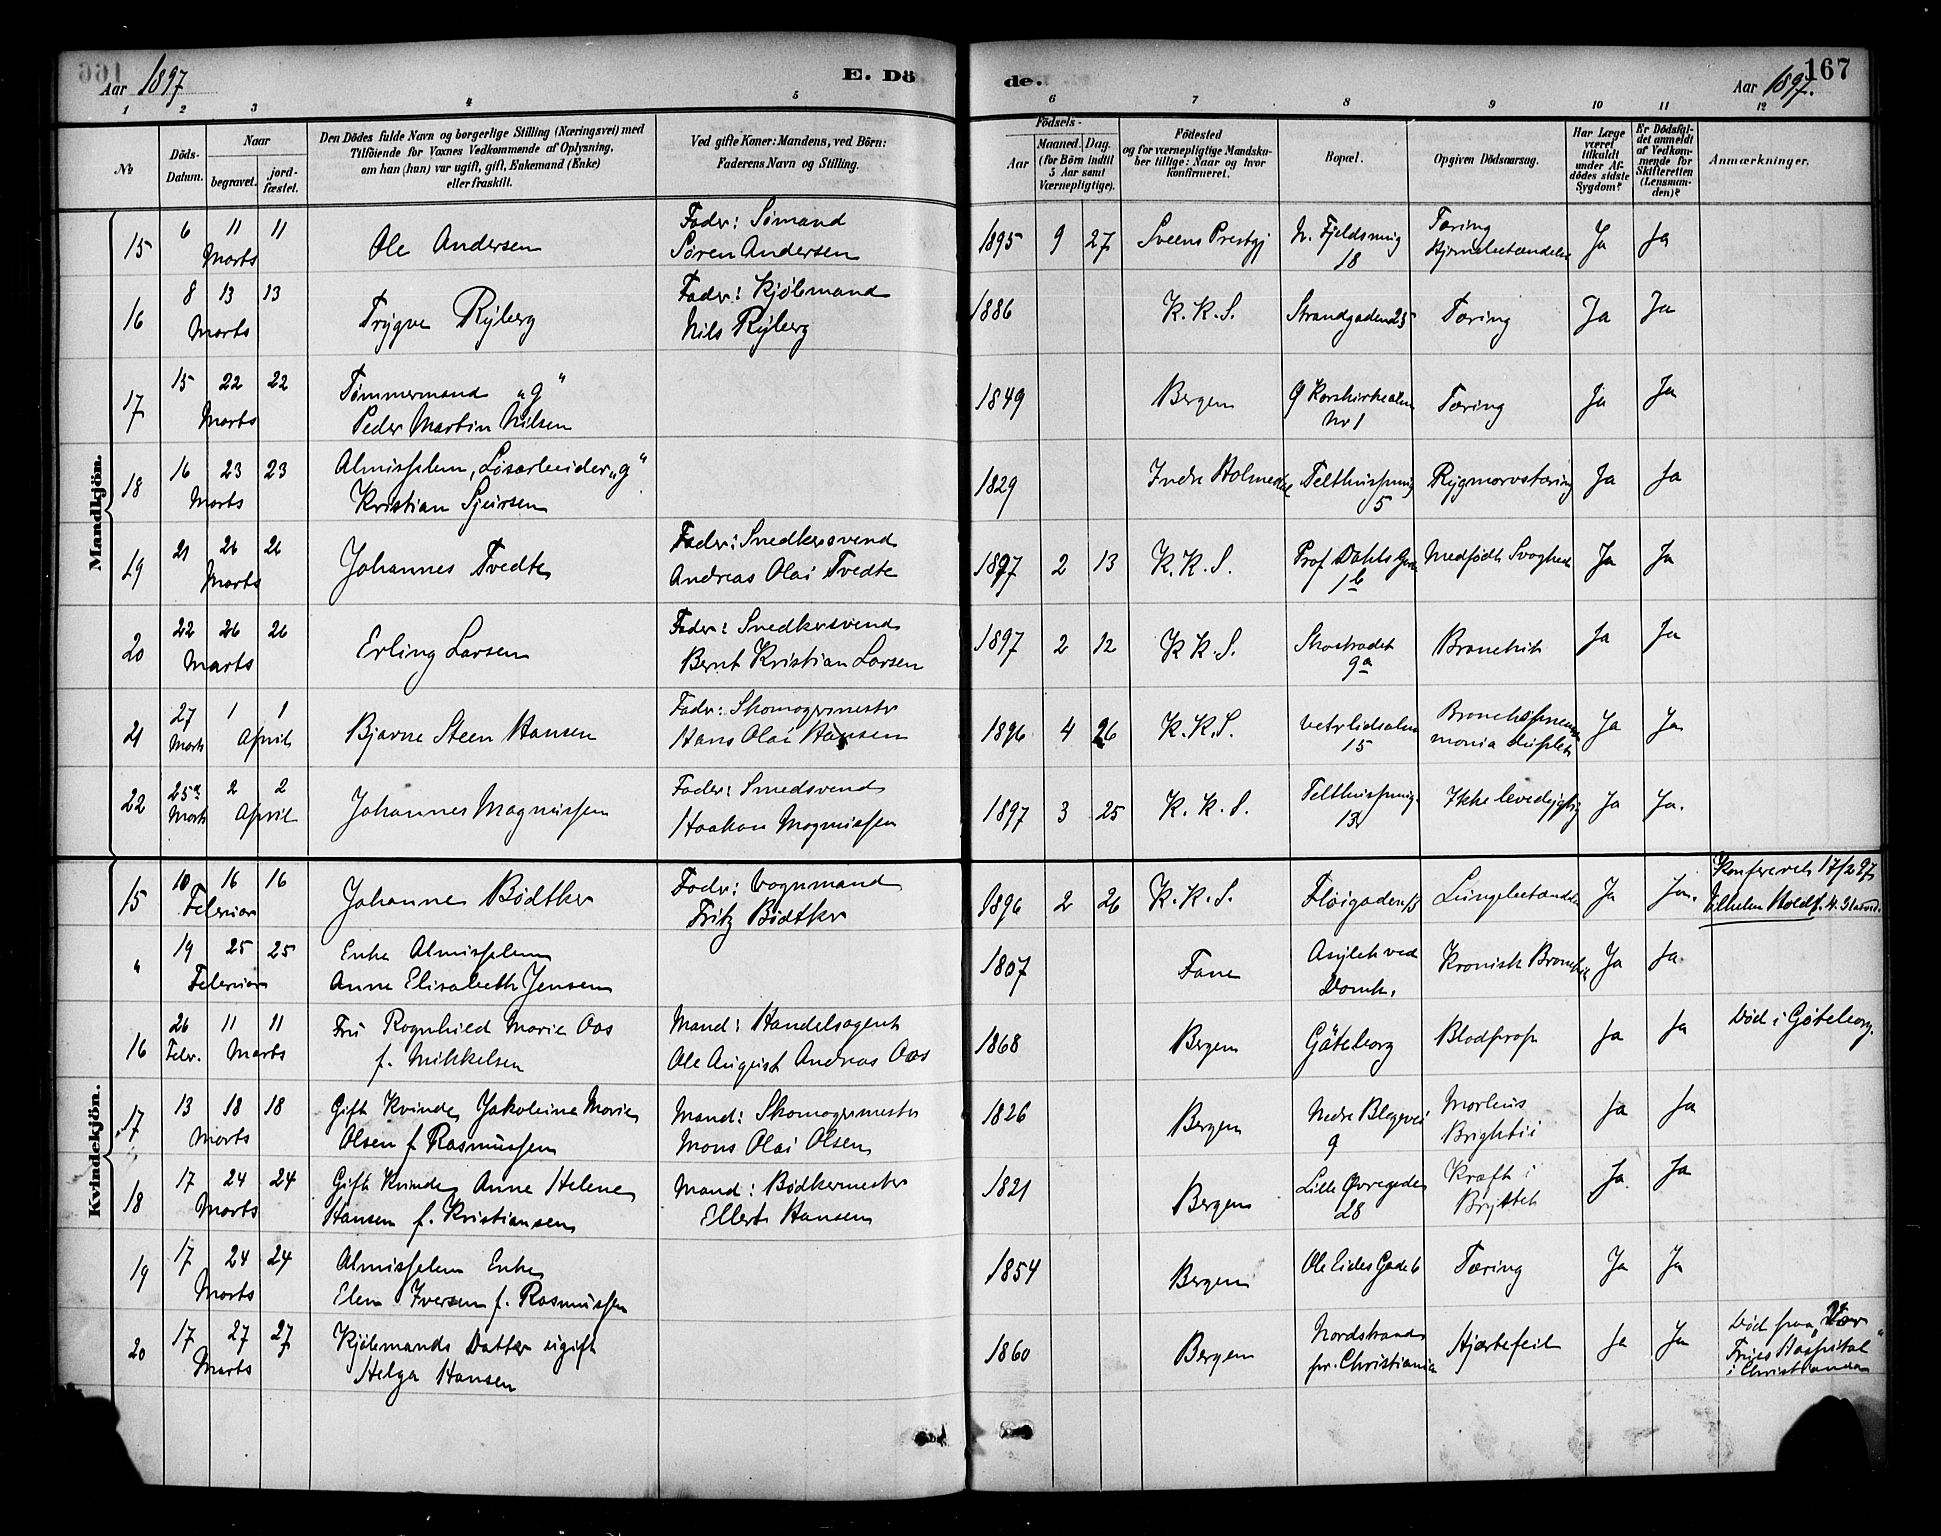 Aar 1897 E. Dö
1 2 3 4 5
№ Döds-Datum. Naar begravet. jordfæstet. Den Dödes fulde Navn og borgerlige Stilling (Næringsvei) med Tilföiende for Voxnes Vedkommende af Oplysning, om han (hun) var ugift, gift, Enkemand (Enke) eller fraskilt. Ved gifte Koner: Mandens, ved Börn: Faderens Navn og Stilling.
de. Aar 1897. 167
6 7 8 9 10 11 12
Födsels- Aar Maaned. Dag. (for Börn indtil 5 Aar samt Værnepligtige). Födested og for værnepligtige Mandskaber tillige: Naar og hvor konfirmeret. Bopæl. Opgiven Dödsaarsag. Har Læge været tilkaldt under Afdödes sidste Sygdom? Er Dödsfaldet anmeldt af Vedkommende for Skifteretten (Lensmanden)? Anmærkninger.
Mandkjön.
15 6 11 11 Marts Ole Andersen Fader: Sømand Søren Andersen 1895 9 27 Sveens Prestgj N. Fjeldsmug 18 Tæring Hjernebetændelse Ja Ja
16 8 13 13 Marts Trygve Ryberg Fader: Kjøbmand Nils Ryberg 1886 K. K. S. Strandgaden 25 Tæring Ja Ja
17 15 22 22 Marts Tømmermand "g" Peder Martin Nilsen 1849 Bergen Korskirkealm No 1 Tæring Ja Ja
18 16 23 23 Marts Almisselem, Løsarbeider "g" Kristian Sjursen 1829 Indre Holmedal Telthussmug 5 Rygmarvstæring Ja Ja
19 21 26 26 Marts Johannes Tvedte Fader: Snedkersvend Andreas Olai Tvedte 1897 2 13 K. K. S. Prof Dahls Gade 1b Medfødt Svaghed Ja Ja
20 22 26 26 Marts Erling Larsen Fader: Snedkersvend Bernt Kristian Larsen 1897 2 12 K K. S. Skostrædet 9a Bronchit Ja Ja
21 27 Marts 1 1 April Bjarne Steen Hansen Fader: Skomagermester Hans Olai Hansen 1896 4 26 K. K. S. Vetrlidsalm 15 Bronchopneumonia duplex Ja Ja
22 25 Marts 2 2 April Johannes Magnussen Fader: Smedsvend Haakon Magnussen 1897 3 25 K. K. S. Telthussmug. 13 Ikke levedygtig Ja Ja.
Kvindekjön.
15 10 16 16 Februar Johanne Bødtker Fader: Vognmand Fritz Bødtker 1896 2 26 K. K. S. Fløigaden Lungebetændelse Ja Ja. Konfereret 17/2 97 Vilhelm Holdt
" 19 25 25 Februar Enke Almisselem Anne Elisabeth Jensen 1807 Fane Asylet ved Domk. Kronisk Bronchit Ja Ja.
16 26 Febr. 11 11 Marts Fru Ragnhild Marie Aas f. Mikkelsen Mand: Handelsagent Ole August Andreas Aas 1868 Bergen Gøteborg Blodprop Ja Ja Død i Gøteborg.
17 13 18 18 Marts Gift Kvinde Jakobine Marie Olsen f. Rasmussen Mand: Skomagermester Mons Olai Olsen 1826 Bergen Nedre Blegevei 9 Morbus Brightii Ja Ja
18 17 24 24 Marts Gift Kvinde Anne Helene Hansen f. Kristiansen Mand: Bødkermester Ellert Hansen 1821 Bergen Lille Øvregade 28 Kræft i Brystet Ja. Ja
19 17 24 24 Marts Almisselem Enke Elen Iversen f. Rasmussen 1854 Bergen Ole Eides Gade 6 Tæring Ja Ja
20 17 27 27 Marts Kjøbmands Datter ugift Helga Hansen 1860 Bergen Nordstrand pr. Christiania Hjærtefeil Ja Ja Død paa "Vor Frues Hospital" i Christiania